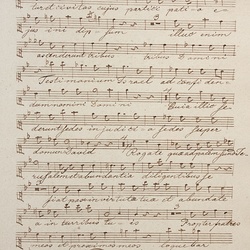 tur et civitas cujus partici patio e
jus in id ipsum illuc enim
ascenderunt tribus tribus Domini
Testimonium Israel ad confiten
dum nomini Domini Quia illic se
derunt sedes in judicio sedes super
domum David Rogate quae ad pacem sunt Je
rusalem et abundantia diligentibus te
fiat pax in virtute tua et abundan
a in turribus tuis Propter fratres
meos et proximos meos loquebar